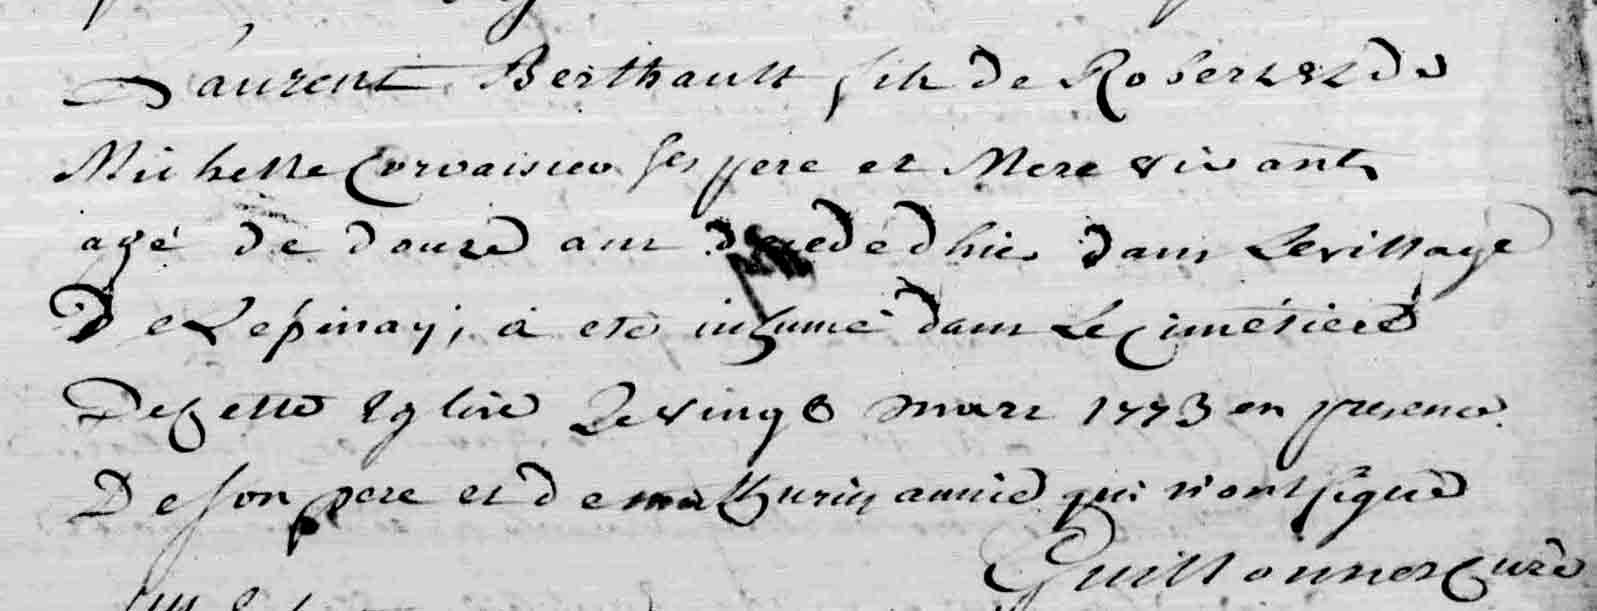 Laurent Berthault fils de Robert et de
Michelle Corvaisier ses pere et Mere vivants
agé de douze ans dhier dans Le village
De Lepinay, a eté inhumé dans Le cimetiere
De cette Eglise Le vingt mars 1773 en presence
De son pere et de mathurin qui n'ont signé
Guillonner Curé